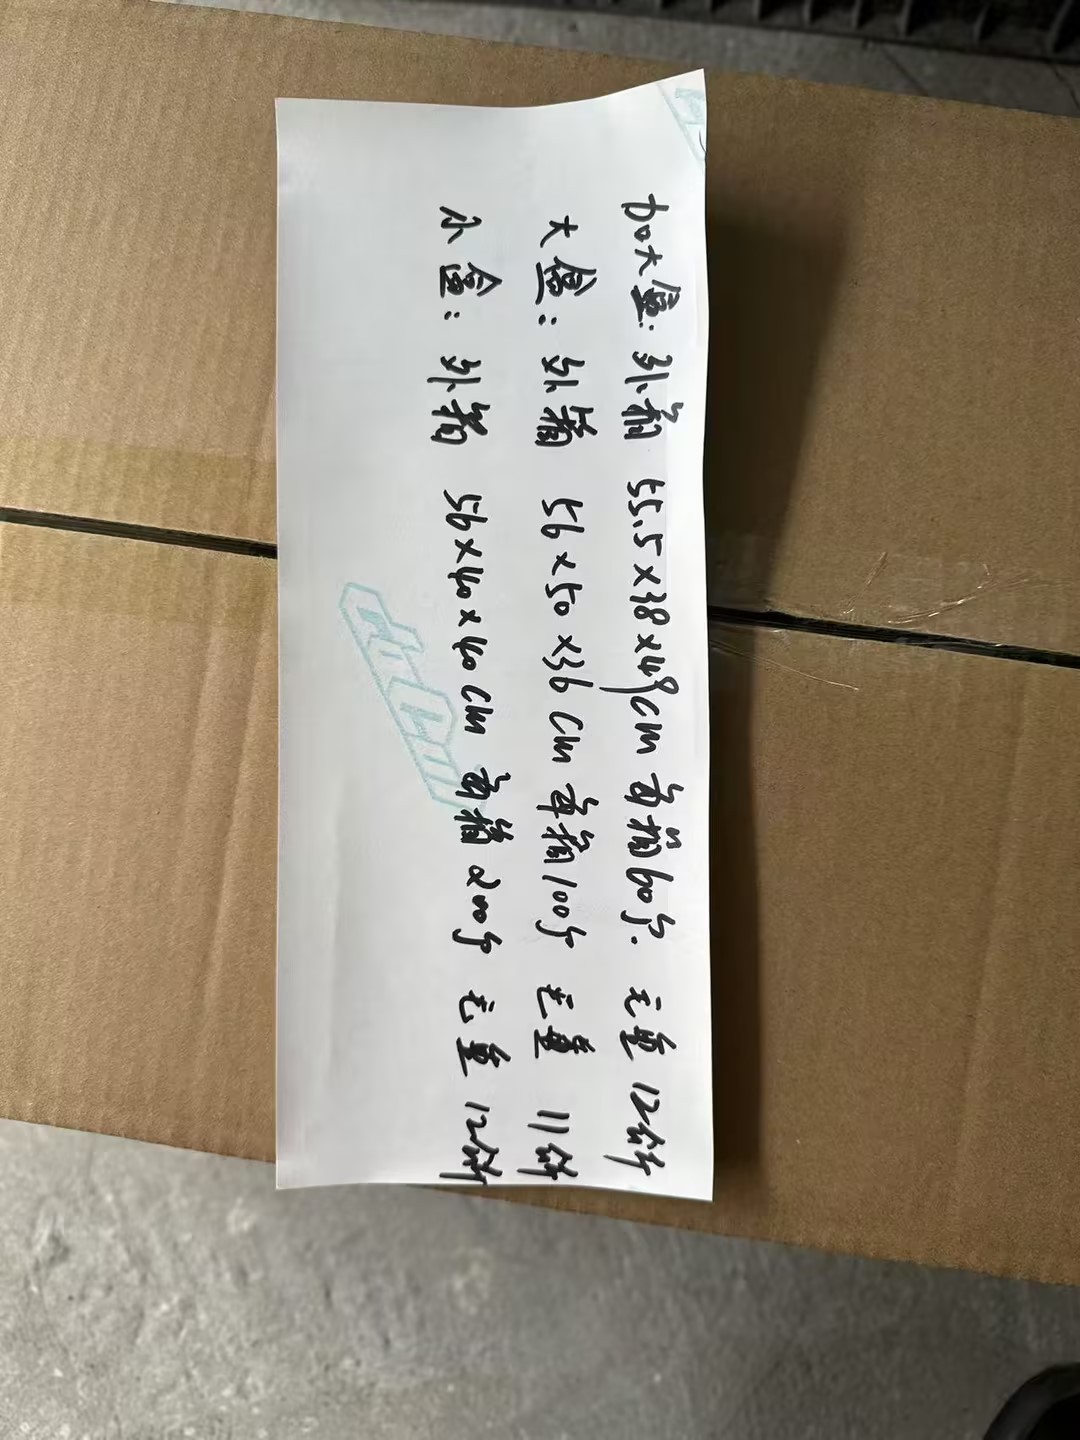 60大盒:外箱 55.5×38×49cm 每箱60个. 毛重 12斤
大盒:外箱 56×50×36cm 每箱100个 毛重 11斤
小盒:外箱 56×40×40cm 每箱200个 毛重 12斤